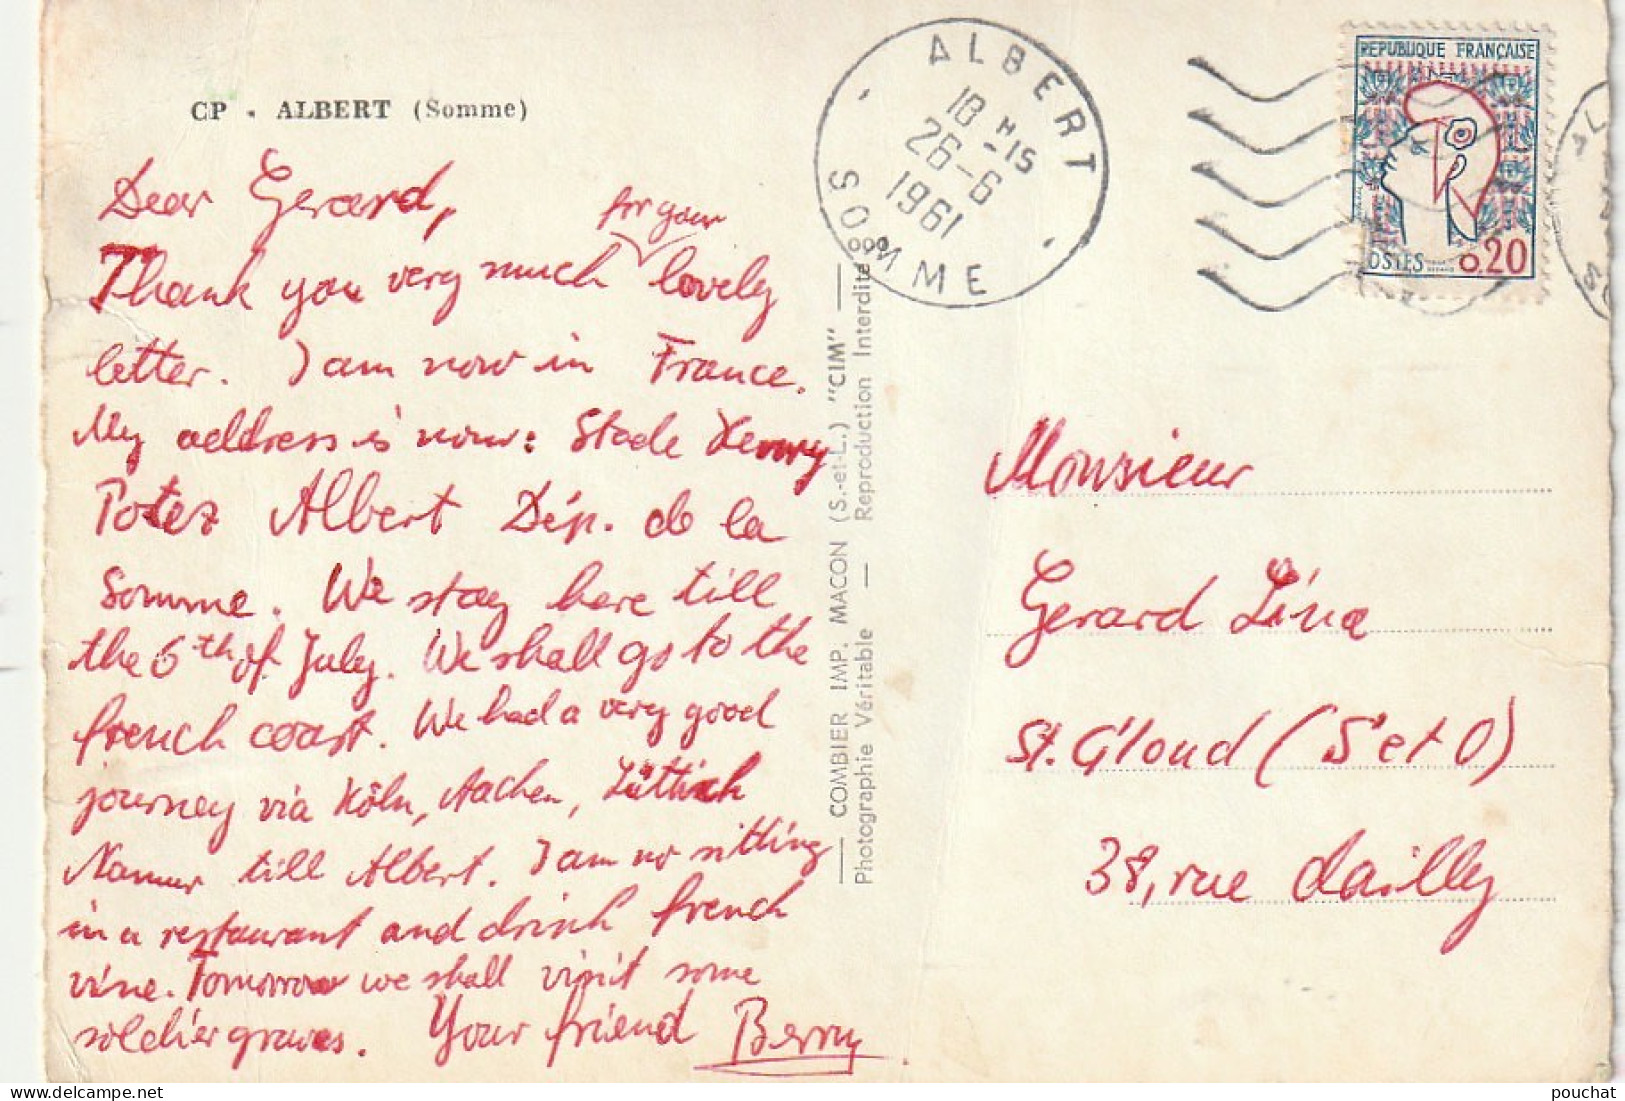 CP . ALBERT (Somme)
Dear Gerard,
for your
Thank you very much lovely
letter. I am now in France.
My address is now: Stade Henry
Potez Albert Dép. de la
Somme. We stay here till
the 6th of July. We shall go to the
french coast. We had a very good
journey via Köln, Aachen, Lüttich
Namur till Albert. I am no sitting
in a restaurant and drink french
vine. Tomorrow we shall visit some
soldier graves. Your friend Berry
COMBIER IMP. MACON (S.-et-L.) "CIM"
Photographie Véritable — Reproduction Interdite
ALBERT
18 H -15
26-6
1961
SOMME
REPUBLIQUE FRANÇAISE
POSTES 0.20
Monsieur
Gerard Lina
St. Cloud (S et O)
38, rue dailly
pouchat